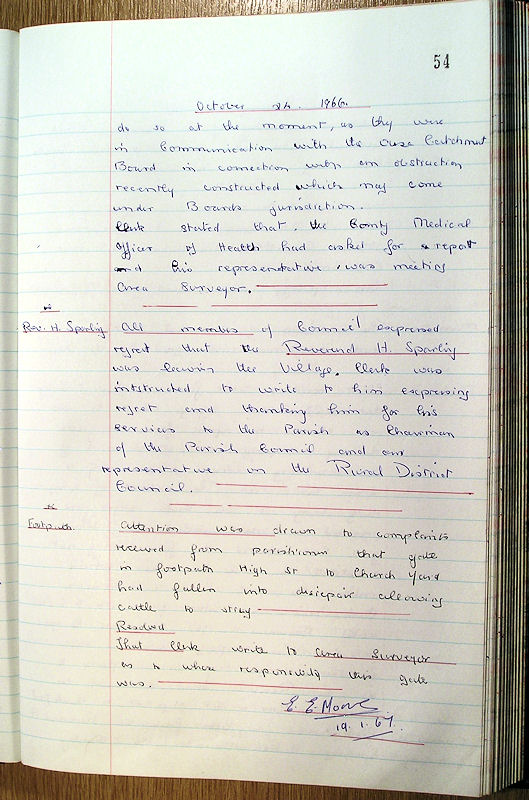 54
October 24. 1966.
do so at the moment, as they were
in Communication with the Ouse Catchment
Board in connection with an obstruction
recently constructed which may come
under Boards jurisdiction.
Clerk stated that, the County Medical
Officer of Health had asked for a report
and his representative was meeting
Area Surveyor.
Rev. H. Sparling
All members of Council expressed
regret that the Reverend H. Sparling
was leaving the Village. Clerk was
instructed to write to him expressing
regret and thanking him for his
services to the Parish as Chairman
of the Parish Council and am
representative on the Rural District
Council.
Footpath.
Attention was drawn to complaints
received from parishioners that gate
in footpath High St to Church Yard
had fallen into disrepair allowing
cattle to stray
Resolved
That Clerk write to Area Surveyor
as to whose responsibility this gate
was.
E. E. Moore
19.1.67.